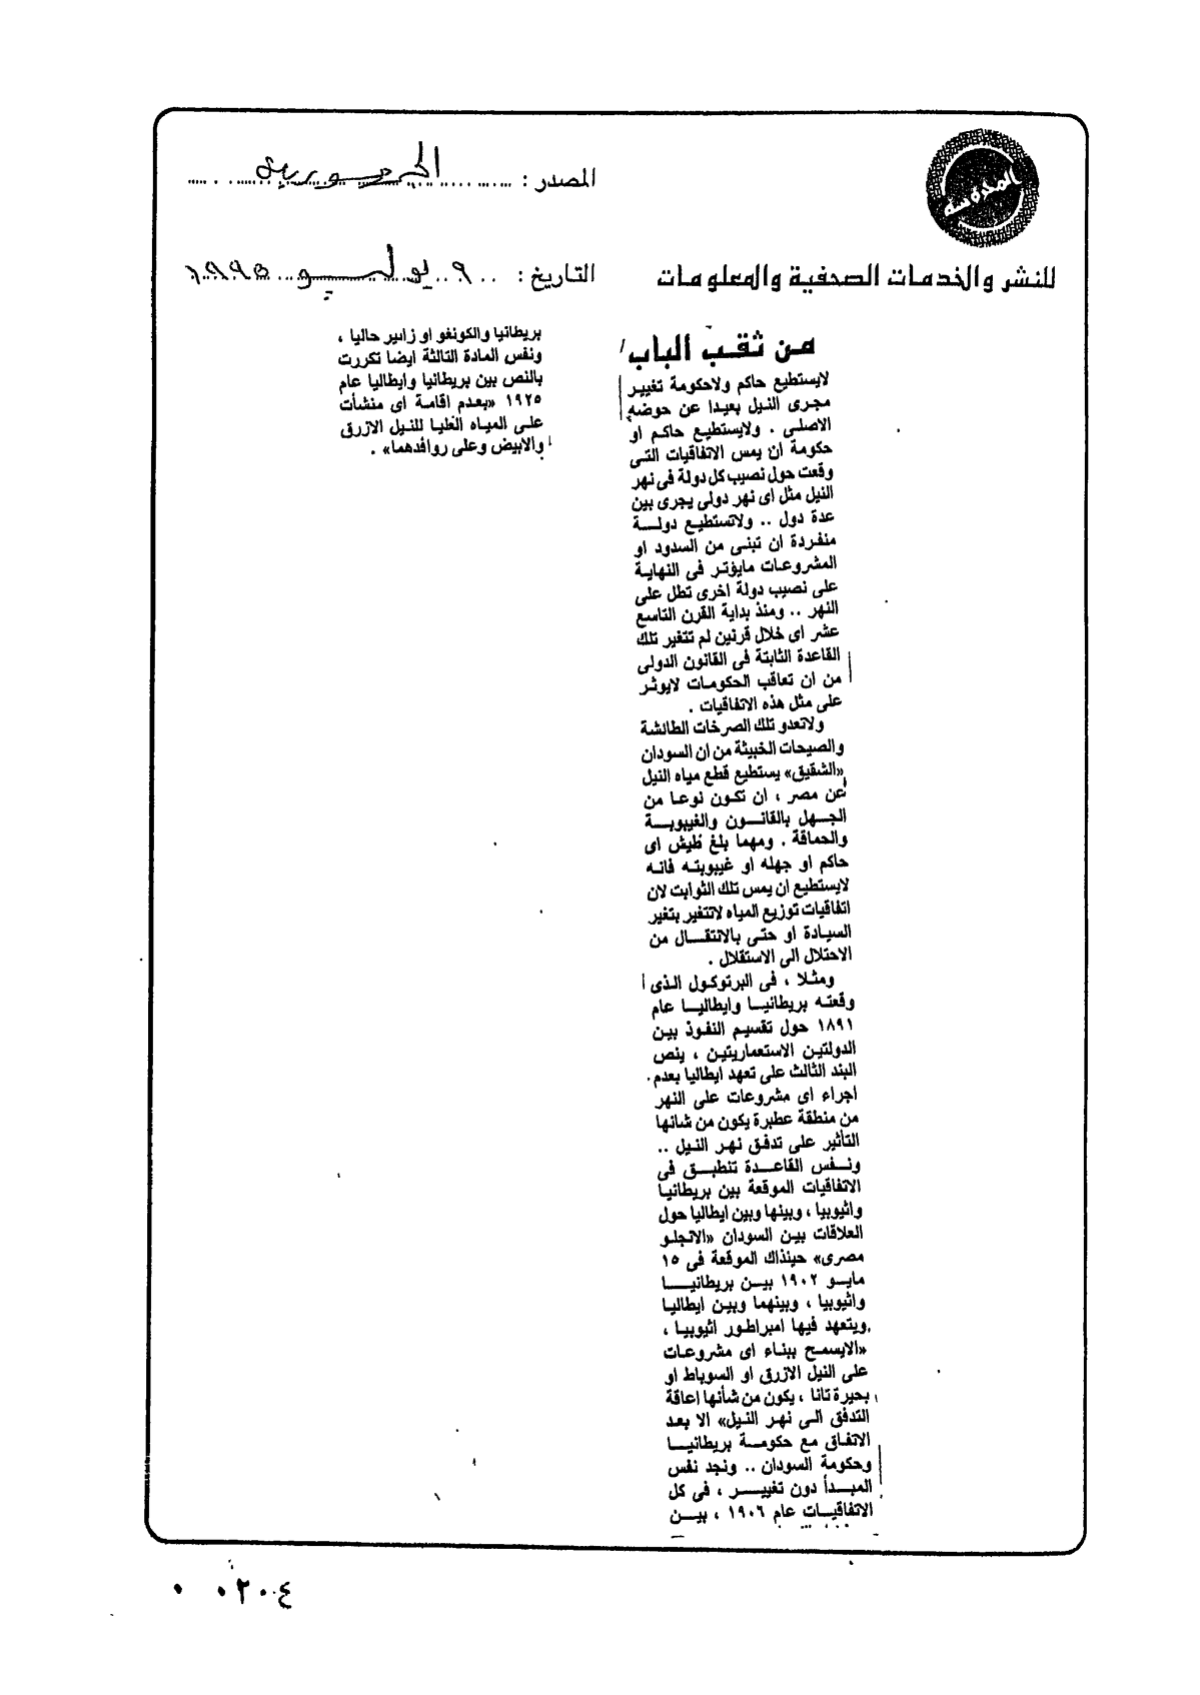 المحروسة
المصدر : الجمهورية
للنشر والخدمات الصحفية والمعلومات
التاريخ : ٩ يوليو ١٩٩٥
من ثقب الباب
لايستطيع حاكم ولاحكومة تغيير
مجرى النيل بعيدا عن حوضه
الاصلى . ولايستطيع حاكم او
حكومة ان يمس الاتفاقيات التى
وقعت حول نصيب كل دولة فى نهر
النيل مثل اى نهر دولى يجرى بين
عدة دول .. ولاتستطيع دولة
منفردة ان تبنى من السدود او
المشروعات مايؤثر فى النهاية
على نصيب دولة اخرى تطل على
النهر .. ومنذ بداية القرن التاسع
عشر اى خلال قرنين لم تتغير تلك
القاعدة الثابتة فى القانون الدولى
من ان تعاقب الحكومات لايؤثر
على مثل هذه الاتفاقيات .
ولاتعدو تلك الصرخات الطائشة
والصيحات الخبيثة من ان السودان
«الشقيق» يستطيع قطع مياه النيل
عن مصر ، ان تكون نوعا من
الجهل بالقانون والغيبوبة
والحماقة . ومهما بلغ طيش اى
حاكم او جهله او غيبوبته فانه
لايستطيع ان يمس تلك الثوابت لان
اتفاقيات توزيع المياه لاتتغير بتغير
السيادة او حتى بالانتقال من
الاحتلال الى الاستقلال .
ومثلا ، فى البرتوكول الذى
وقعته بريطانيا وايطاليا عام
١٨٩١ حول تقسيم النفوذ بين
الدولتين الاستعماريتين ، ينص
البند الثالث على تعهد ايطاليا بعدم
اجراء اى مشروعات على النهر
من منطقة عطبرة يكون من شانها
التأثير على تدفق نهر النيل ..
ونفس القاعدة تنطبق فى
الاتفاقيات الموقعة بين بريطانيا
واثيوبيا ، وبينها وبين ايطاليا حول
العلاقات بين السودان «الانجلو
مصرى» حينذاك الموقعة فى ١٥
مايو ١٩٠٢ بين بريطانيا
واثيوبيا ، وبينهما وبين ايطاليا
ويتعهد فيها امبراطور اثيوبيا ،
«الايسمح ببناء اى مشروعات
على النيل الازرق او السوباط او
بحيرة تانا ، يكون من شأنها اعاقة
التدفق الى نهر النيل» الا بعد
الاتفاق مع حكومة بريطانيا
وحكومة السودان .. ونجد نفس
المبدأ دون تغيير ، فى كل
الاتفاقيات عام ١٩٠٦ ، بين
بريطانيا والكونغو او زاىير حاليا ،
ونفس المادة الثالثة ايضا تكررت
بالنص بين بريطانيا وايطاليا عام
١٩٢٥ «بعدم اقامة اى منشأت
على المياه العليا للنيل الازرق
والابيض وعلى روافدهما» .
٠ ٠٢٠٤